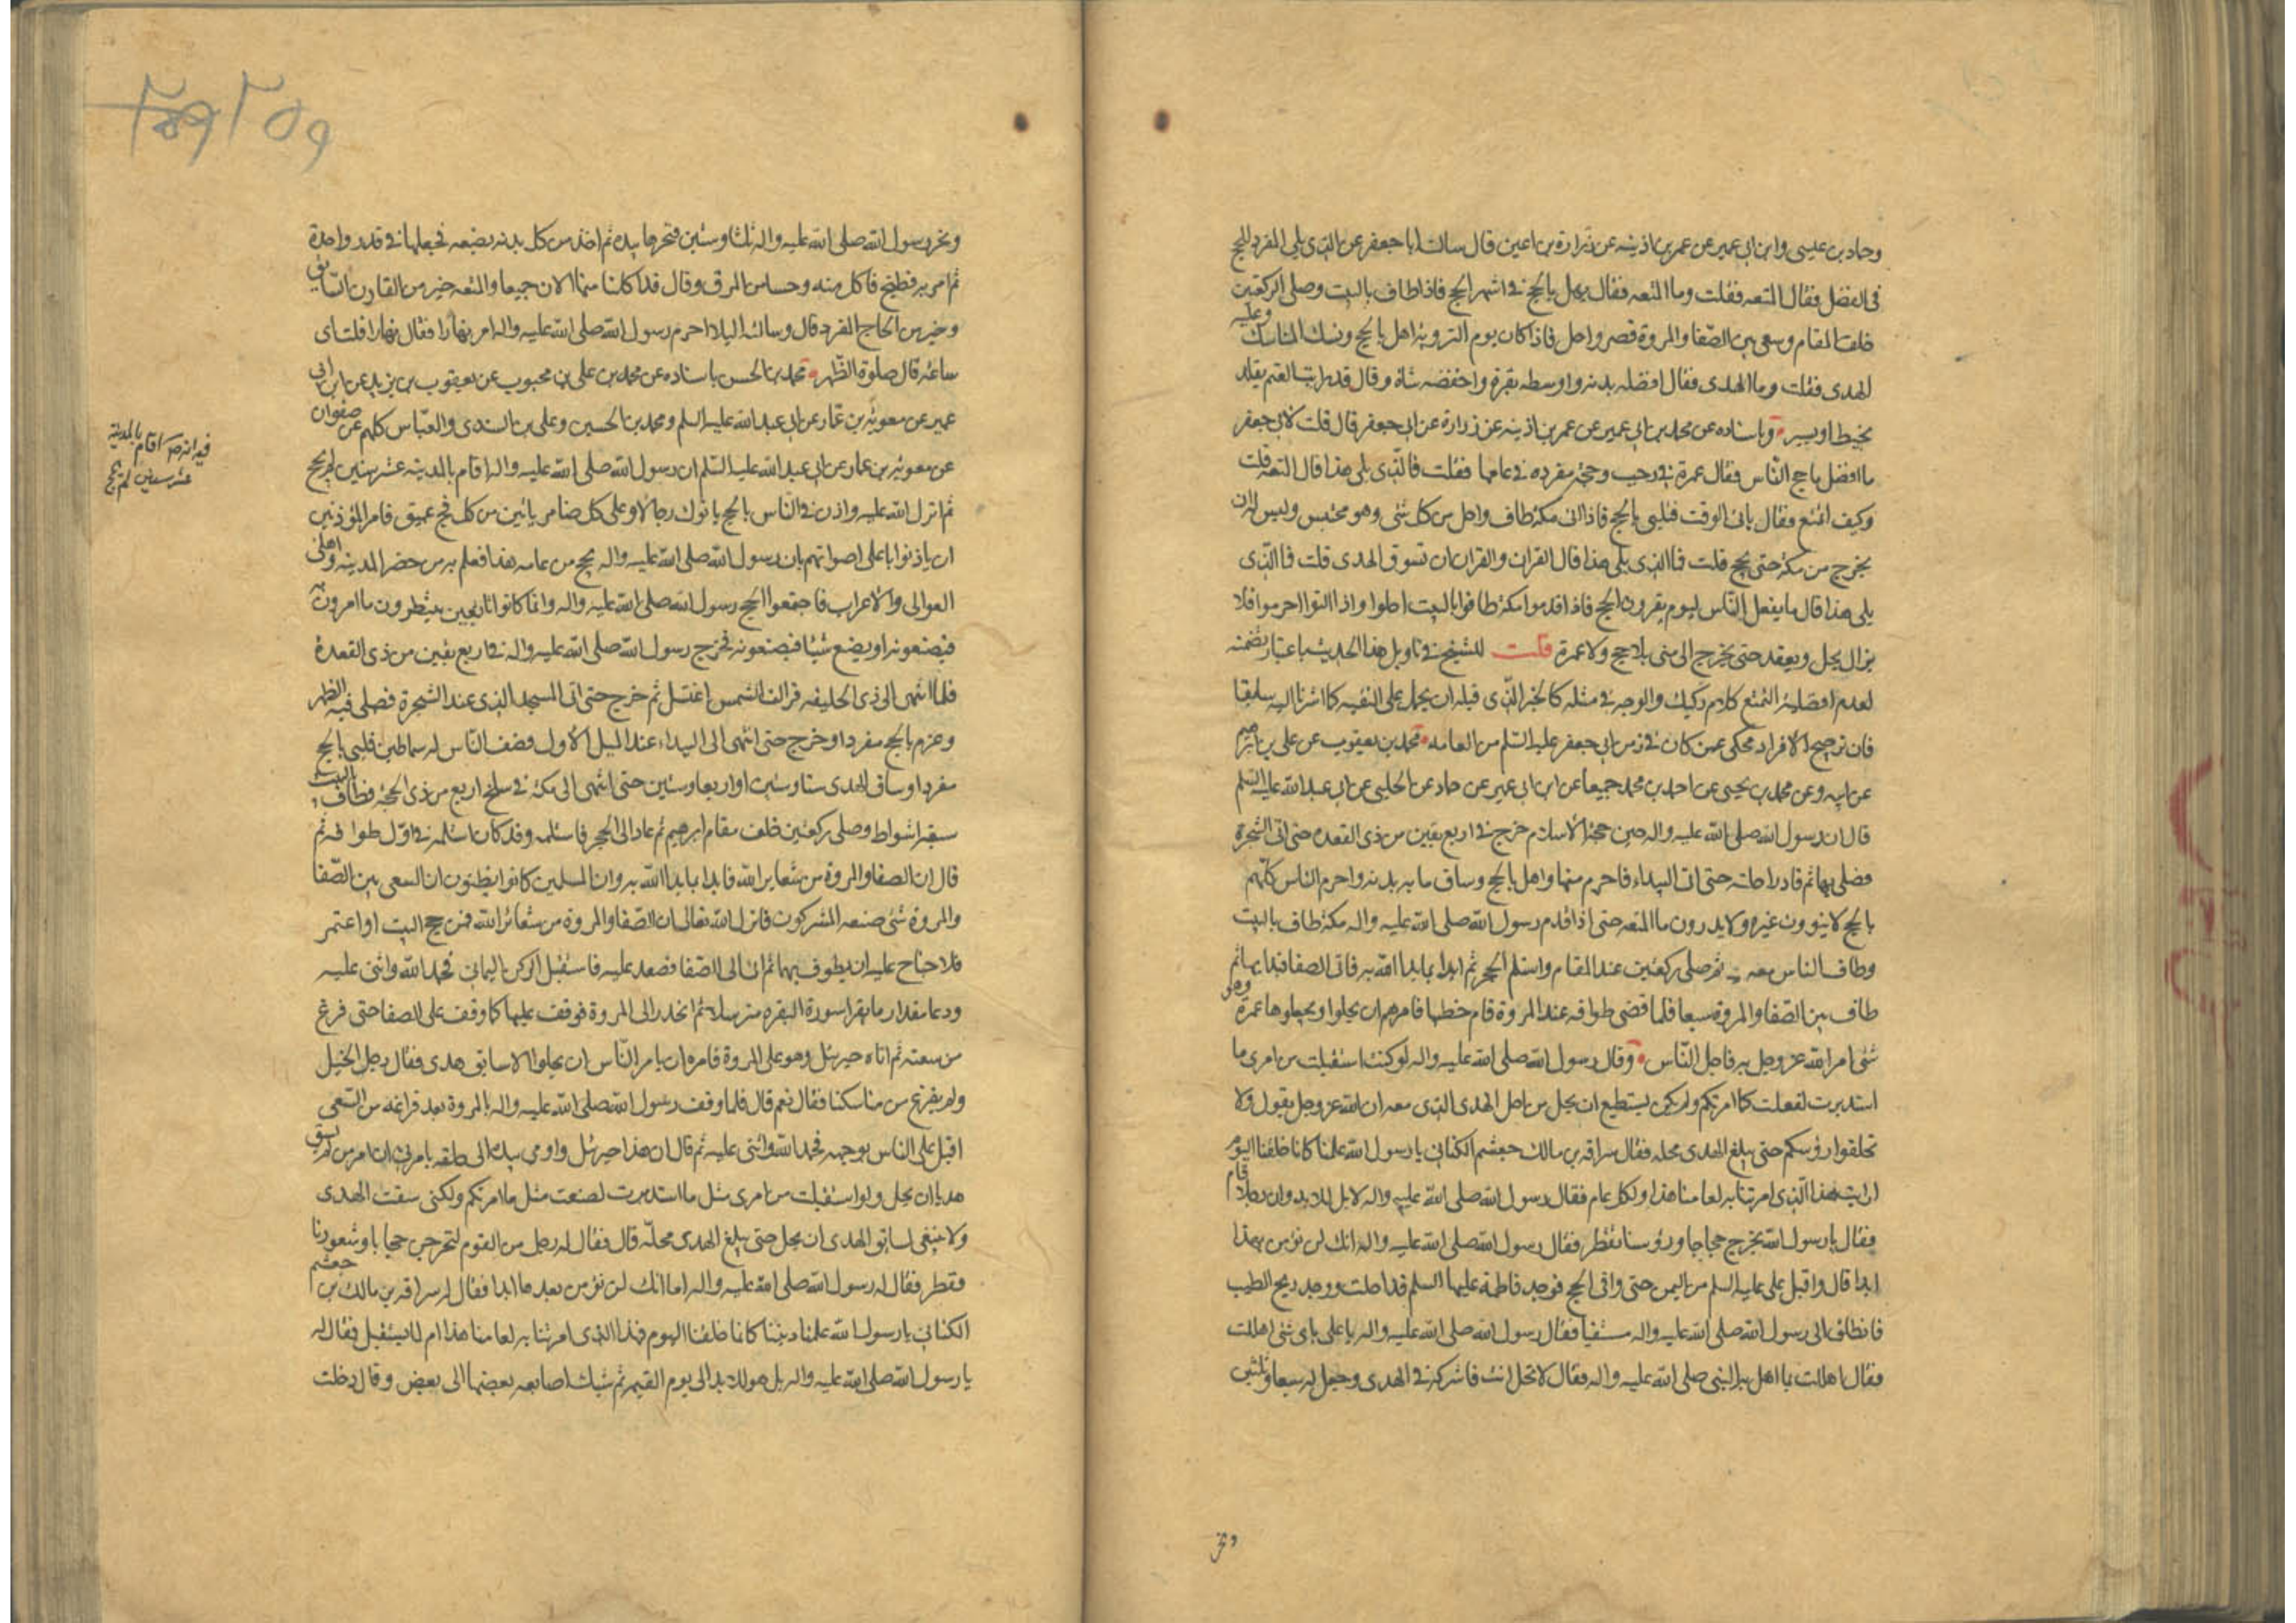 وحماد بن عيسى وابن ابى عمير عن عمر بن اذينه عن زرارة بن اعين قال سالت ابا جعفر عن الذى يلى المفرد للحج
فى الفضل فقال المتعه فقلت وما المتعه فقال يهل بالحج فى اشهر الحج فاذا طاف بالبيت وصلى الركعتين
خلف المقام وسعى بين الصفا والمروة قصر واحل فاذا كان يوم التروية اهل بالحج ونسك المناسك وعليه
الهدى فقلت وما الهدى فقال افضله بدنه واوسطه بقرة واخفضه شاة وقال قد رايت الغنم يقلد
بخيط او بسير وباسناده عن محمد بن ابى عمير عن عمر بن اذينه عن زرارة عن ابى جعفر قال قلت لابى جعفر
ما افضل ما حج الناس فقال عمرة فى رجب وحجة مفرده فى عامها فقلت فالذى يلى هذا قال المتعه قلت
وكيف اتمتع فقال ياتى الوقت فيلبى بالحج فاذا اتى مكة طاف واحل من كل شئ وهو محتبس وليس له ان
يخرج من مكة حتى يحج قلت فما الذى يلى هذا قال القران والقران ان تسوق الهدى قلت فما الذى
يلى هذا قال ما يفعل الناس اليوم يفردون الحج فاذا قدموا مكة طافوا بالبيت احلوا واذا لبوا احرموا فلا
يزال يحل ويعقد حتى يخرج الى منى بلا حج ولا عمرة قلت للشيخ فى تاويل هذا الحديث باعتبار تضمنه
لعدم افضلية التمتع كلام ركيك والوجه فى مثله كالخبر الذى قبله ان يحمل على التقيه كما اشرنا اليه سابقا
فان ترجيح الافراد محكى عمن كان فى زمن ابى جعفر عليه السلم من العامه محمد بن يعقوب عن على بن ابرهيم
عن ابيه وعن محمد بن يحيى عن احمد بن محمد جميعا عن ابن ابى عمير عن حماد عن الحلبى عن ابى عبد الله عليه السلم
قال ان رسول الله صلى الله عليه واله حين حج حجة الاسلام خرج فى اربع بقين من ذى القعده حتى اتى الشجرة
فصلى بها ثم قاد راحلته حتى اتى البيداء فاحرم منها واهل بالحج وساق مايه بدنه واحرم الناس كلهم
بالحج لا ينوون غيره ولا يدرون ما المتعه حتى اذا قدم رسول الله صلى الله عليه واله مكة طاف بالبيت
وطاف الناس معه ثم صلى ركعتين عند المقام واستلم الحجر ثم قال ابدا بما بدا الله به فاتى الصفا فبدا بها ثم
طاف بين الصفا والمروة سبعا فلما قضى طوافه عند المروة قام خطيبا فامرهم ان يحلوا ويجعلوها عمرة وهو
شئ امر الله عز وجل به فاحل الناس وقال رسول الله صلى الله عليه واله لو كنت استقبلت من امرى ما
استدبرت لفعلت كما امرتكم ولم يكن يستطيع ان يحل من اجل الهدى الذى معه ان الله عز وجل يقول ولا
تحلقوا رؤسكم حتى يبلغ الهدى محله فقال سراقه بن مالك جعشم الكنانى يا رسول الله علمنا كانا خلقنا اليوم
ارايت هذا الذى امرتنا به لعامنا هذا او لكل عام فقال رسول الله صلى الله عليه واله لا بل للابد وان رجلا قام
فقال يا رسول الله نخرج حجاجا ورؤسنا تقطر فقال رسول الله صلى الله عليه واله انك لن تؤمن بهذا
ابدا قال واقبل على عليه السلم من اليمن حتى وافى الحج فوجد فاطمة عليها السلم قد احلت ووجد ريح الطيب
فانطلق الى رسول الله صلى الله عليه واله مستفتيا فقال رسول الله صلى الله عليه واله يا على باى شئ اهللت
فقال اهللت بما اهل به النبى صلى الله عليه واله فقال لا تحل انت فاشركه فى الهدى وجعل له سبعا وثلثين
ونحر
٢٥٩
ونحر رسول الله صلى الله عليه واله ثلثا وستين فنحرها بيده ثم اخذ من كل بدنه بضعه فجعلها فى قدر واحدة
ثم امر به فطبخ فاكل منه وحسا من المرق وقال قد اكلنا منها الان جميعا والمتعه خير من القارن السايق
وخير من الحاج المفرد قال وسالته اليلا احرم رسول الله صلى الله عليه واله ام نهارا فقال نهارا قلت اى
ساعة قال صلوة الظهر محمد بن الحسن باسناده عن محمد بن على بن محبوب عن يعقوب بن يزيد عن ابن ابى
عمير عن معوية بن عمار عن ابى عبد الله عليه السلم ومحمد بن الحسين وعلى بن السندى والعباس كلهم عن صفوان
عن معوية بن عمار عن ابى عبد الله عليه السلم ان رسول الله صلى الله عليه واله اقام بالمدينه عشر سنين لم يحج
ثم انزل الله عليه واذن فى الناس بالحج ياتوك رجالا وعلى كل ضامر ياتين من كل فج عميق فامر المؤذنين
ان ياذنوا باعلى اصواتهم بان رسول الله صلى الله عليه واله يحج من عامه هذا فعلم به من حضر المدينه واهل
العوالى والاعراب فاجتمعوا لحج رسول الله صلى الله عليه واله وانما كانوا تابعين ينتظرون ما امرون به
فيصنعونه او يصنع شيئا فيصنعونه فخرج رسول الله صلى الله عليه واله فى اربع بقين من ذى القعدة
فلما انتهى الى ذى الحليفه فزالت الشمس اغتسل ثم خرج حتى اتى المسجد الذى عند الشجرة فصلى فيه الظهر
وعزم بالحج مفردا وخرج حتى انتهى الى البيداء عند الميل الاول فصف الناس له سماطين فلبى بالحج
مفردا وساق الهدى ستا وستين او اربعا وستين حتى انتهى الى مكة فى سلخ اربع من ذى الحجة فطاف بالبيت
سبعة اشواط وصلى ركعتين خلف مقام ابرهيم ثم عاد الى الحجر فاستلمه وقد كان استلمه فى اول طوافه ثم
قال ان الصفا والمروة من شعاير الله فابدا بما بدا الله به وان المسلمين كانوا يظنون ان السعى بين الصفا
والمروة شئ صنعه المشركون فانزل الله تعالى ان الصفا والمروة من شعائر الله فمن حج البيت او اعتمر
فلا جناح عليه ان يطوف بهما ثم اتى الى الصفا فصعد عليه فاستقبل الركن اليمانى فحمد الله واثنى عليه
ودعا مقدار ما يقرا سورة البقره مترسلا ثم انحدر الى المروة فوقف عليها كما وقف على الصفا حتى فرغ
من سعيه ثم اتاه جبرئل وهو على المروة فامره ان يامر الناس ان يحلوا الا سايق هدى فقال رجل انحل
ولم نفرغ من مناسكنا فقال نعم قال فلما وقف رسول الله صلى الله عليه واله بالمروة بعد فراغه من السعى
اقبل على الناس بوجهه فحمد الله واثنى عليه ثم قال ان هذا جبرئل واومى بيده الى خلفه يامرنى ان امر من لم يسق
هديا ان يحل ولو استقبلت من امرى مثل ما استدبرت لصنعت مثل ما امرتكم ولكنى سقت الهدى
ولا ينبغى لسايق الهدى ان يحل حتى يبلغ الهدى محله قال فقال له رجل من القوم لنخرجن حجاجا وشعورنا
تقطر فقال له رسول الله صلى الله عليه واله اما انك لن تؤمن بعدها ابدا فقال له سراقه بن مالك بن جعشم
الكنانى يا رسول الله علمنا ديننا كانا خلقنا اليوم فهذا الذى امرتنا به لعامنا هذا ام لما يستقبل فقال له
يا رسول الله صلى الله عليه واله بل هو للابد الى يوم القيمه ثم شبك اصابعه بعضها الى بعض وقال دخلت
فيه انه ص اقام بالمدينة
عشر سنين لم يحج